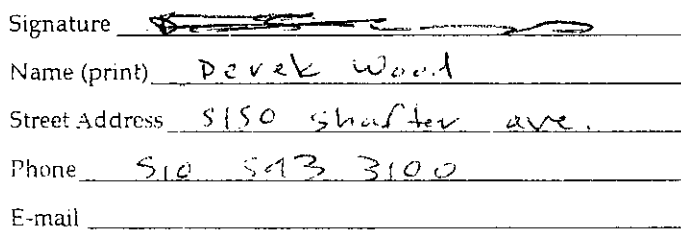 Signature
Name (print) Derek Wood
Street Address 5150 shafter ave.
Phone 510 543 3100
E-mail